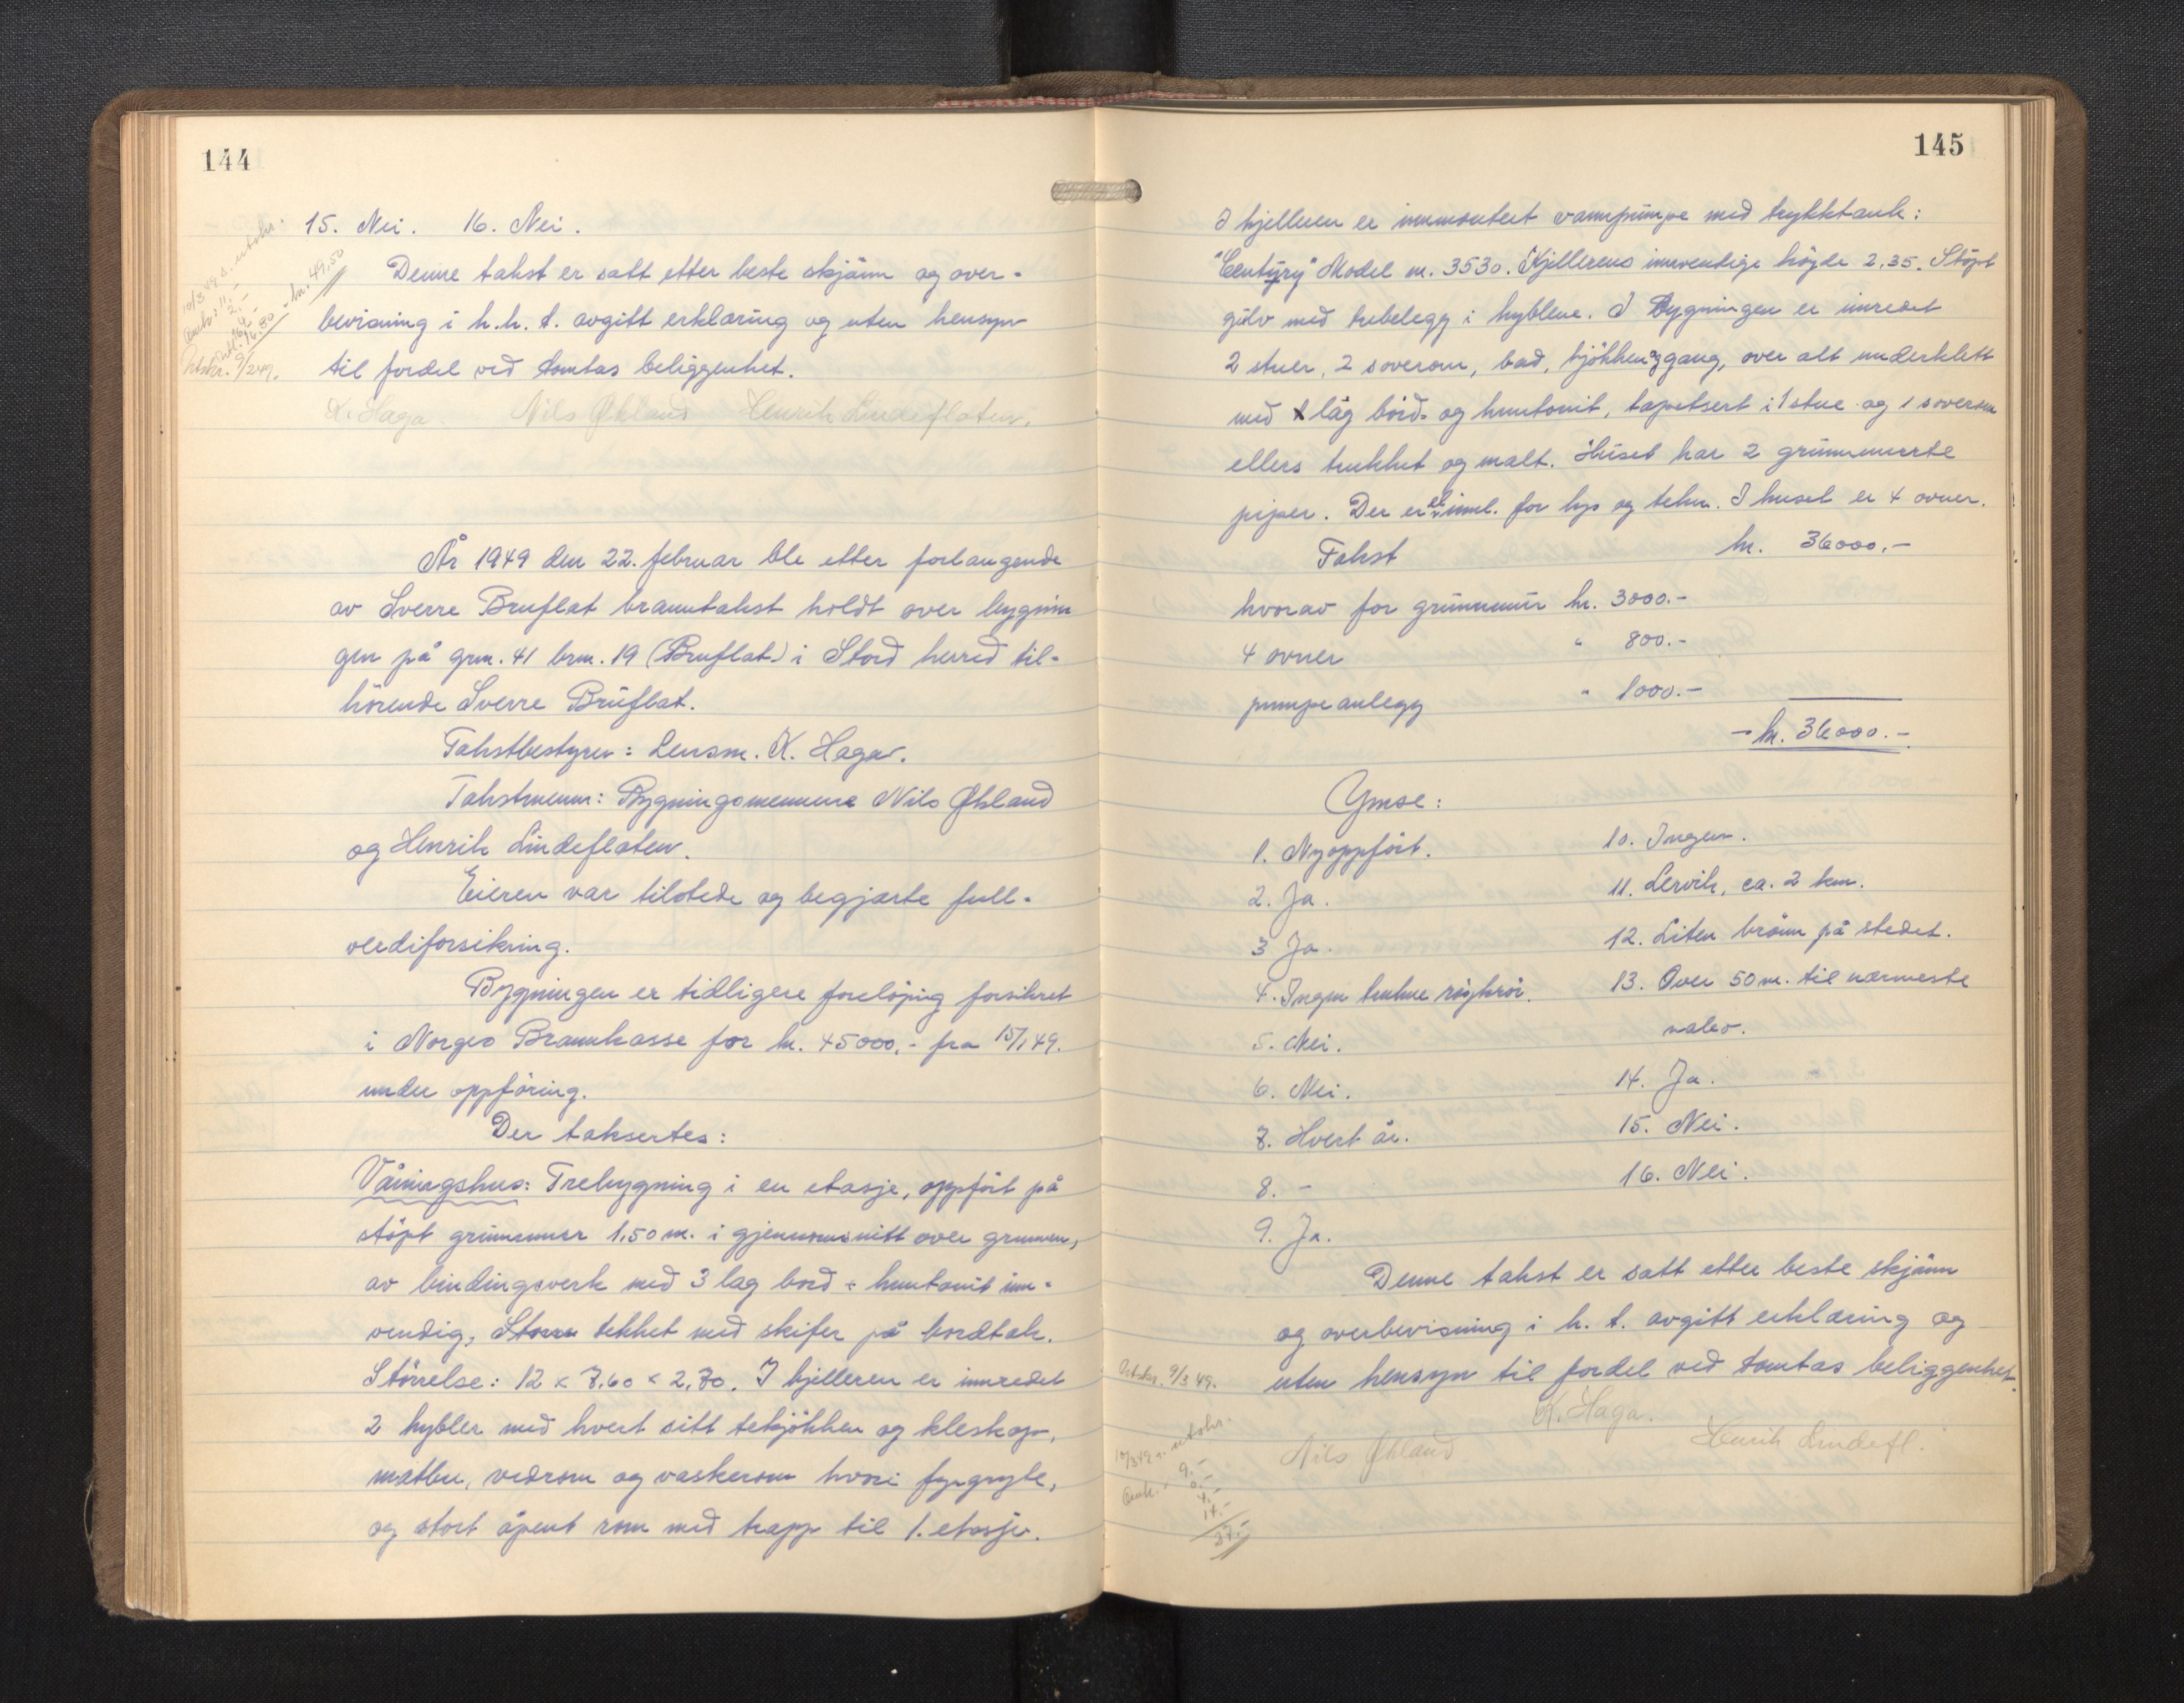 144
15. Nei. 16. Nei.
Denne takst er satt etter beste skjønn og over-
bevisning i h.h.t. avgitt erklæring og uten hensyn
til fordel ved tomtas beliggenhet.
K. Haga. Nils Økland Henrik Lindefloten.
kr. 49.50
Utskr. 9/3 49.
År 1949 den 22. februar ble etter forlangende
av Sverre Bruflat branntakst holdt over bygnin
gen på grn. 41 brn. 19 (Bruflat) i Stord herred til-
hörende Sverre Bruflat.
Takstbestyrer: Lensm. K. Haga.
Takstmenn: Bygningsmennene Nils Økland
og Henrik Lindefloten.
Eieren var tilstede og begjærte full-
verdiforsikring.
Bygningen er tidligere foreløpig forsikret
i Norges Brannkasse for kr. 45000,- fra 15/1 49.
under oppföring.
Der taksertes:
Våningshus: Trebygning i en etasje, oppfört på
støpt grunnmur 1,50 m. i gjennomsnitt over grunnen,
av bindingsverk med 3 lag bord + huntonit inn-
vendig, tekket med skifer på bordtak.
Störrelse: 12 x 7,60 x 2,70. I kjelleren er innredet
2 hybler med hvert sitt tekjökken og kleskap,
matbu, vedrom og vaskerom hvori fyrgryte,
og stort åpent rom med trapp til 1. etasje.
145
I kjelleren er innmontert vannpumpe med trykktank:
"Century" Model nr. 3530. Kjellerens innvendige höyde 2,35. Støpt
gulv med trebelegg i hyblene. I Bygningen er innredet
2 stuer, 2 soverom, bad, kjökken og gang, over alt underkledt
med låg bord- og huntonit, tapetsert i 1 stue og 1 soverom
ellers trukket og malt. Huset har 2 grunnmurte
piper. Der er el innl. for lys og tekn. I huset er 4 ovner.
Takst kr. 36000,-
hvorav for grunnmur kr. 3000.-
4 ovner " 800.-
pumpeanlegg " 1000.-
- kr. 36000.-
Ymse:
1. Nyoppfört. 10. Ingen.
2. Ja. 11. Lervik, ca. 2 km.
3 Ja. 12. Liten brönn på stedet.
4. Ingen trukne röykrör. 13. Over 50 m. til nærmeste
nabo.
5. Nei.
6. Nei. 14. Ja.
7. Hvert år. 15. Nei.
8. - 16. Nei.
9. Ja.
Denne takst er satt etter beste skjønn
og overbevisning i h. t. avgitt erklæring og
uten hensyn til fordel ved tomtas beliggenhet.
Utskr. 9/3 49.
K. Haga.
Nils Økland Henrik Lindefl.
9.-
4.-
14.-
27.-